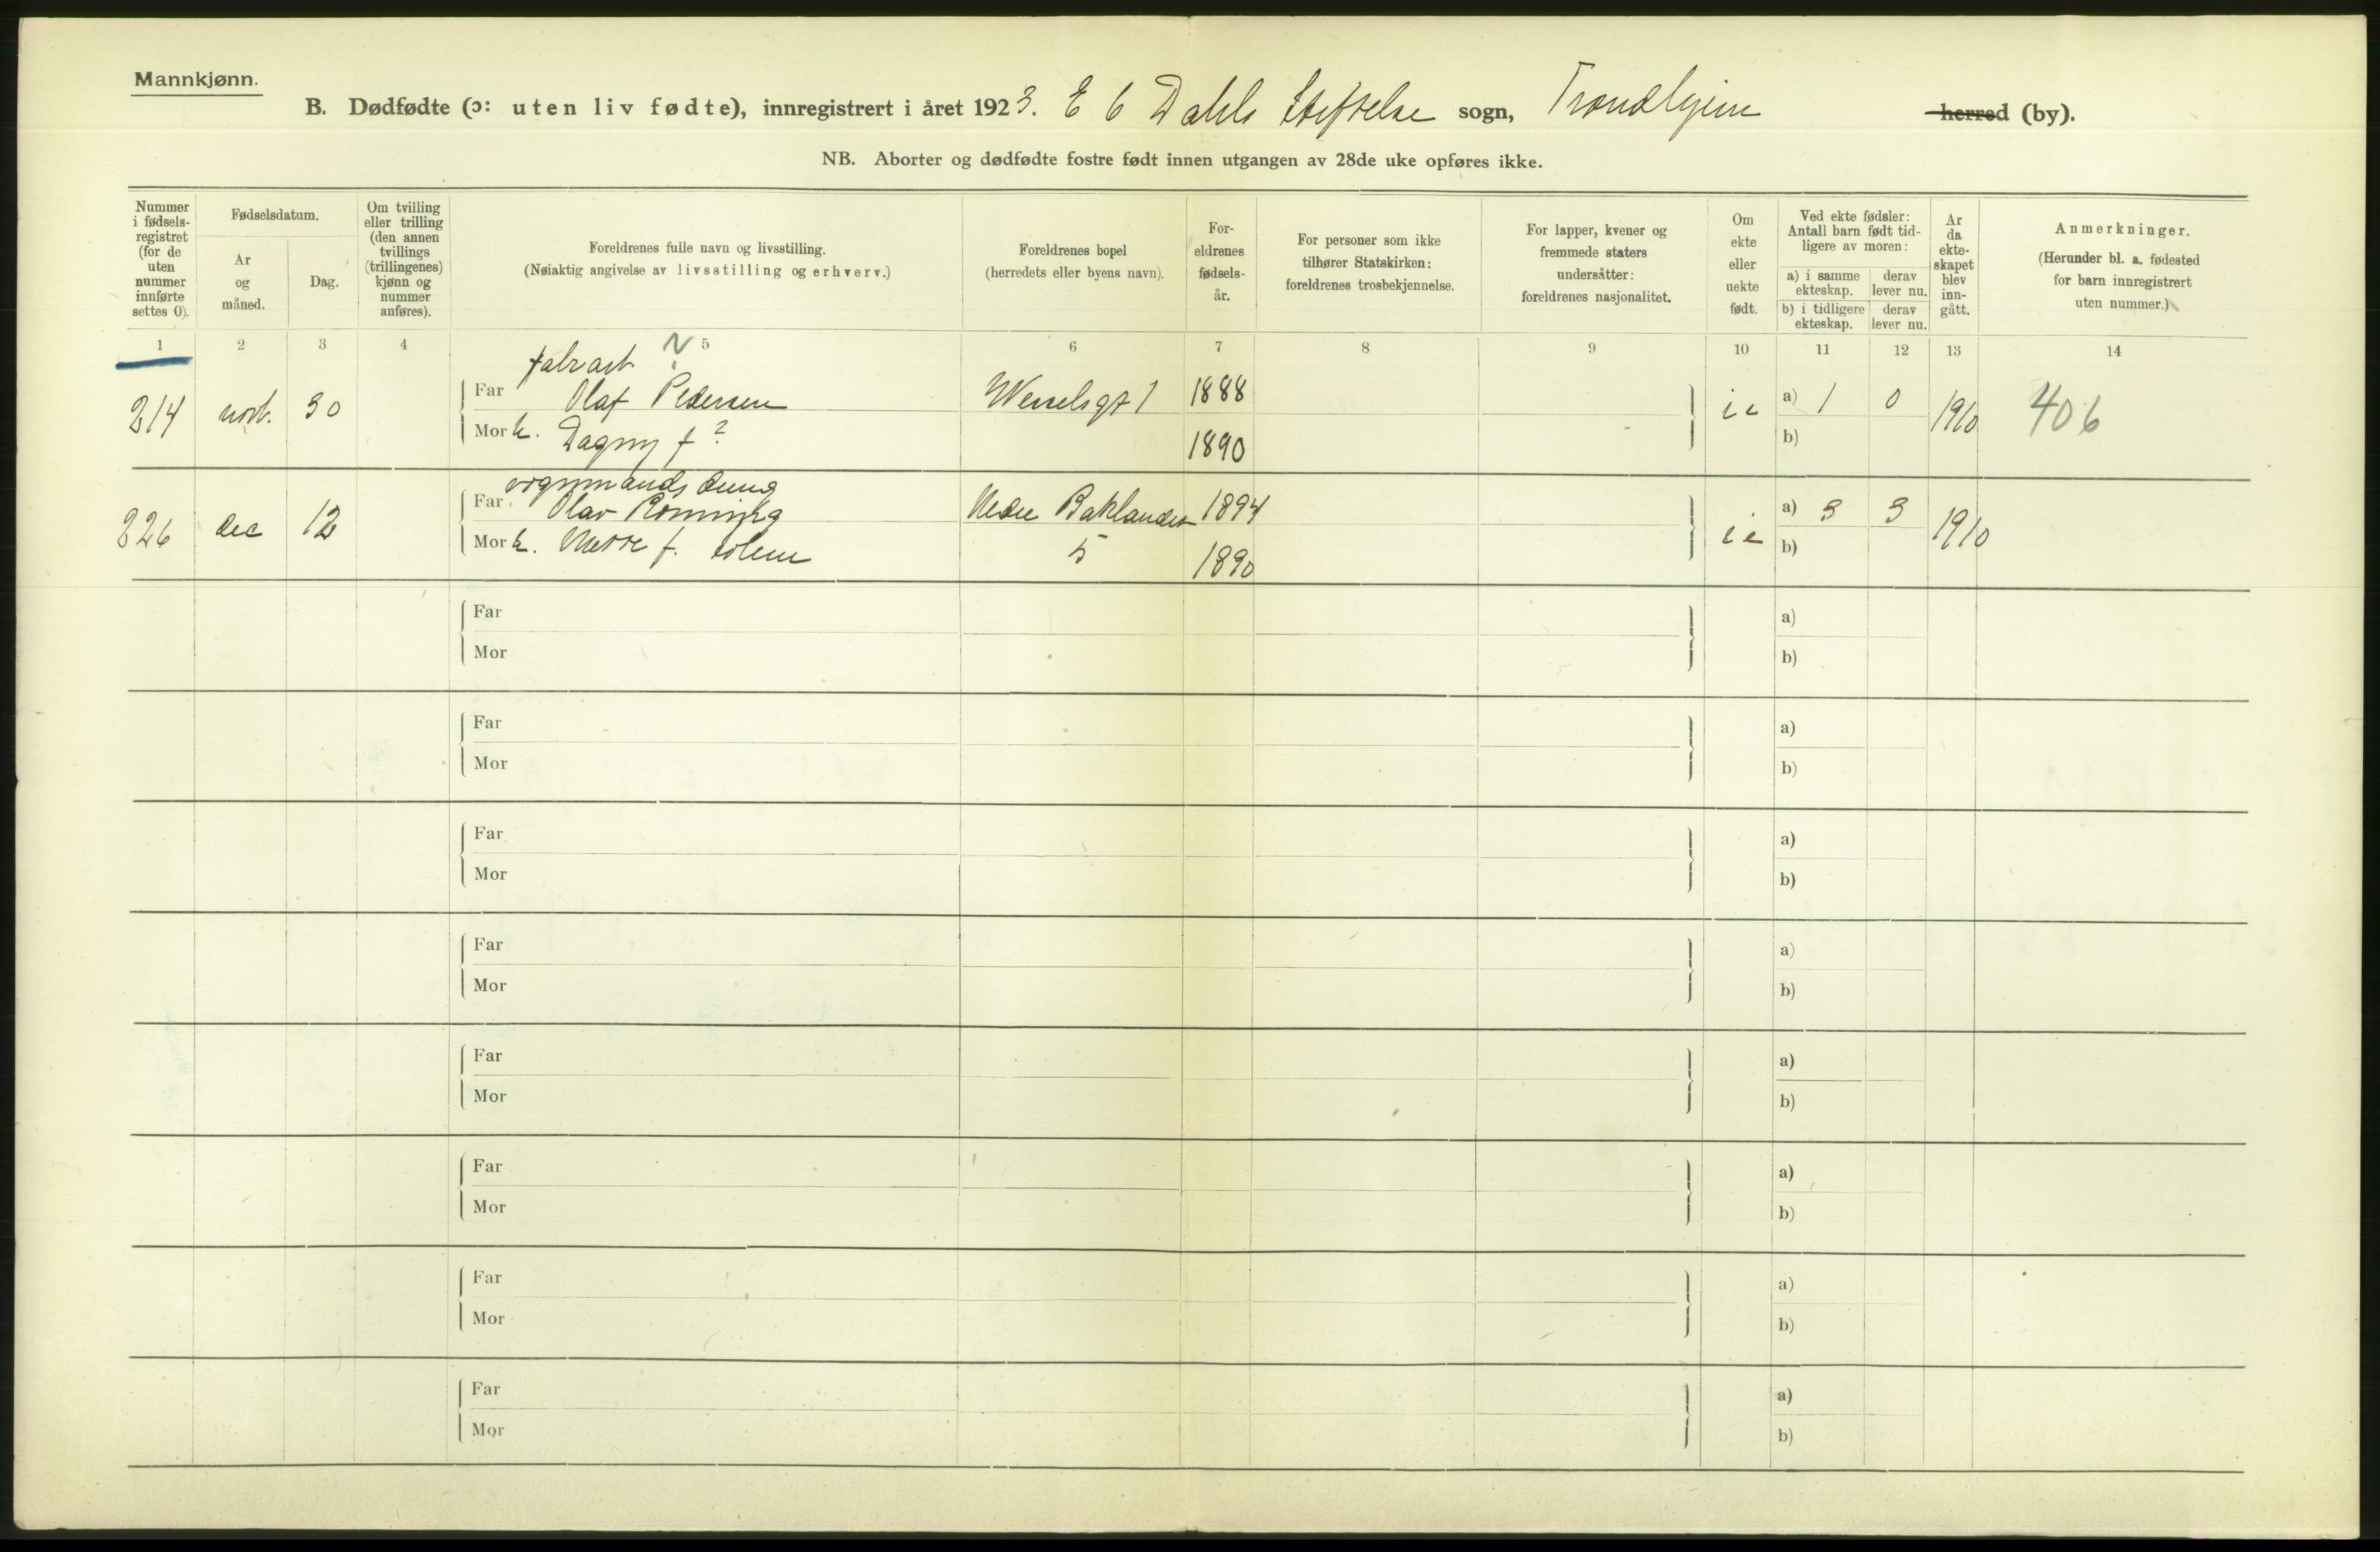 Mannkjønn.
B. Dødfødte (ɔ: uten liv fødte), innregistrert i året 1923. E C Dahls Stiftelse sogn, Trondhjem herred (by).
NB. Aborter og dødfødte fostre født innen utgangen av 28de uke opføres ikke.
Nummer i fødsels-registret (for de uten nummer innførte settes 0).
Fødselsdatum.
Ar og måned.
Dag.
Om tvilling eller trilling (den annen tvillings (trillingenes) kjønn og nummer anføres).
Foreldrenes fulle navn og livsstilling.
(Nøiaktig angivelse av livsstilling og erhverv.)
Foreldrenes bopel
(herredets eller byens navn).
For-eldrenes fødsels-år.
For personer som ikke tilhører Statskirken: foreldrenes trosbekjennelse.
For lapper, kvener og fremmede staters undersåtter: foreldrenes nasjonalitet.
Om ekte eller uekte født.
Ved ekte fødsler: Antall barn født tid-ligere av moren:
a) i samme ekteskap.
derav lever nu.
b) i tidligere ekteskap.
derav lever nu.
Ar da ekte-skapet blev inn-gått.
Anmerkninger.
(Herunder bl. a. fødested for barn innregistrert uten nummer.)
1 2 3 4 5 6 7 8 9 10 11 12 13 14
fabr arb. ?
214 novb. 30 Far Olaf Pedersen Wesselsgt 1 1888 a) 1 0 1910 406
Mor h. Dagny f ? 1890 b)
226 dec 12 Far Olav Rønning Nedre Baklandet 1894 a) 3 3 1910
Mor h. f. 5 1890 b)
Far a)
Mor b)
Far a)
Mor b)
Far a)
Mor b)
Far a)
Mor b)
Far a)
Mor b)
Far a)
Mor b)
Far a)
Mor b)
Far a)
Mor b)